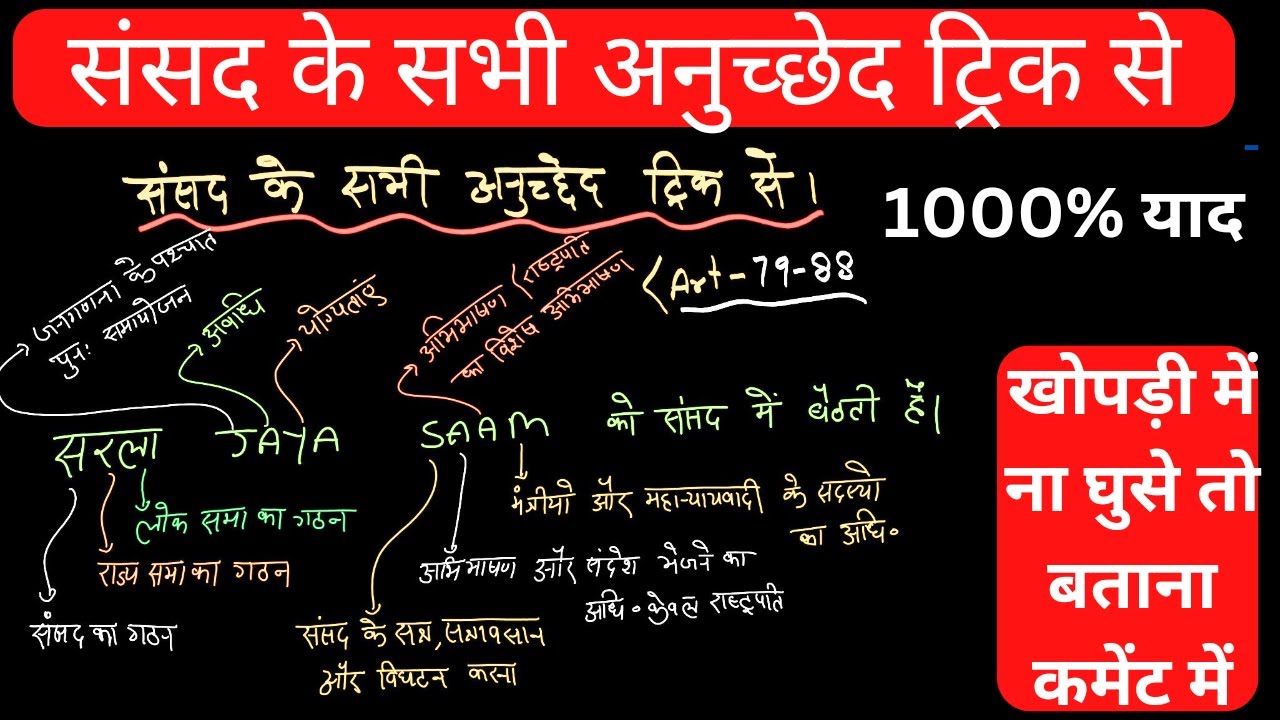 संसद के सभी अनुच्छेद ट्रिक से
संसद के सभी अनुच्छेद ट्रिक से।
1000% याद
(Art-79-88
जनगणना के पश्चात
पुनः समायोजन
अवधि
योग्यताएं
अभिभाषण (राष्ट्रपति
का विशेष अभिभाषण
सरला JAYA SAAM को संसद में बैठती हैं।
लोक सभा का गठन
राज्य सभा का गठन
संसद का गठन
मंत्रीयो और महान्यायवादी के सदस्यो
का अधि॰
अभिभाषण और संदेश भेजने का
अधि॰ केवल राष्ट्रपति
संसद के सत्र, सत्रावसान
और विघटन करना
खोपड़ी में
ना घुसे तो
बताना
कमेंट में